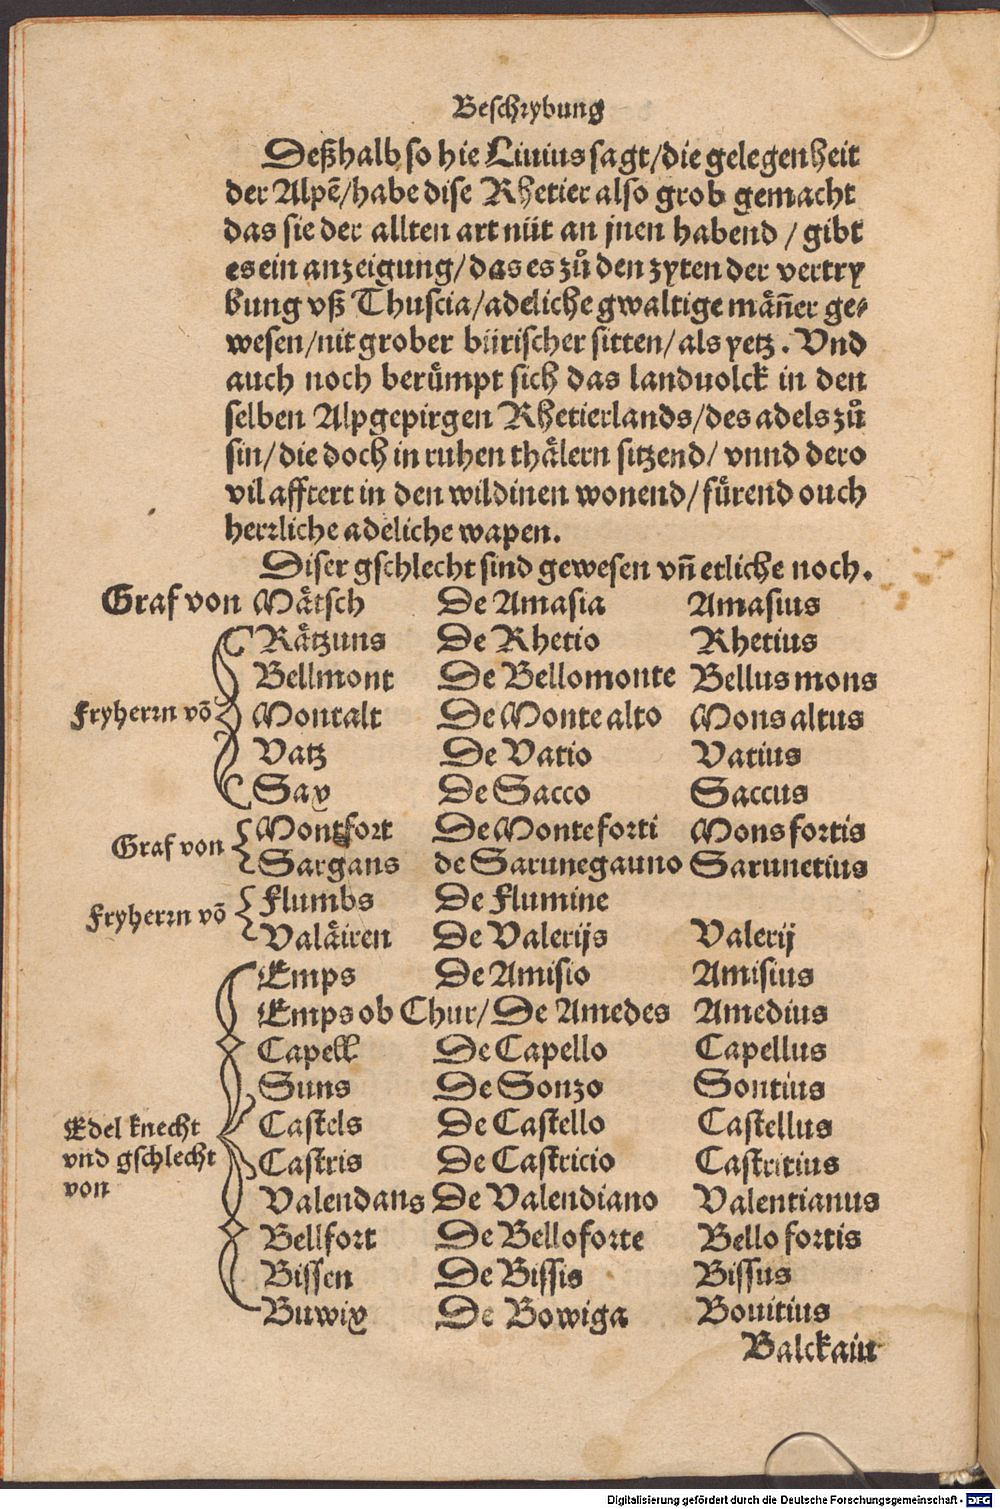 Beschrybung
Deßhalb so hie Liuius sagt/die gelegenheit
der Alpẽ/habe dise Rhetier also grob gemacht
das sie der allten art nüt an jnen habend / gibt
es ein anzeigung/das es zů den zyten der vertry
bung vß Thuscia/adeliche gwaltige mañer ge⸗
wesen/nit grober bürischer sitten/als yetz. Vnd
auch noch berümpt sich das landuolck in den
selben Alpgepirgen Rhetierlands/des adels zů
sin/die doch in ruhen thälern sitzend/ vnnd dero
vil afftert in den wildinen wonend/fürend ouch
herrliche adeliche wapen.
Diser gschlecht sind gewesen vñ etliche noch.
Graf von Mätsch De Amasia Amasius
Rätzuns De Rhetio Rhetius
Bellmont De Bellomonte Bellus mons
Fryherrn võ Montalt De Monte alto Mons altus
Vatz De Vatio Vatius
Sax De Sacco Saccus
Graf von Montfort De Monteforti Mons fortis
Sargans de Sarunegauno Sarunetius
Fryherrn võ Flumbs De Flumine
Valäiren De Valerijs Valerij
Emps De Amisio Amisius
Emps ob Chur/ De Amedes Amedius
Capell De Capello Capellus
Suns De Sonzo Sontius
Edel knecht Castels De Castello Castellus
vnd gschlecht Castris De Castricio Castritius
von Valendans De Valendiano Valentianus
Bellfort De Belloforte Bello fortis
Bissen De Bissis Bissus
Buwix De Bowiga Bouitius
Balckain
Digitalisierung gefördert durch die Deutsche Forschungsgemeinschaft - DFG